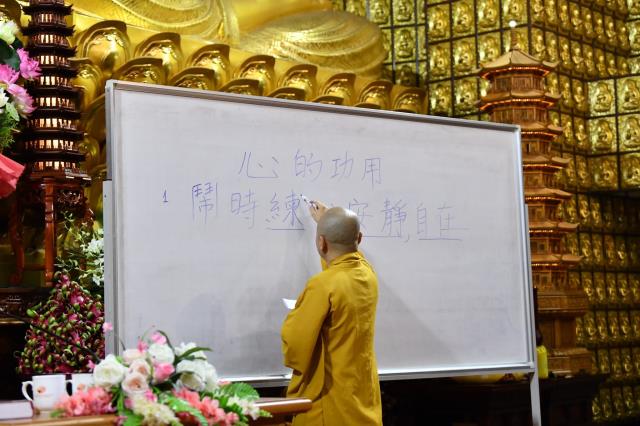 心的功用
1 鬧時練 安靜,自在